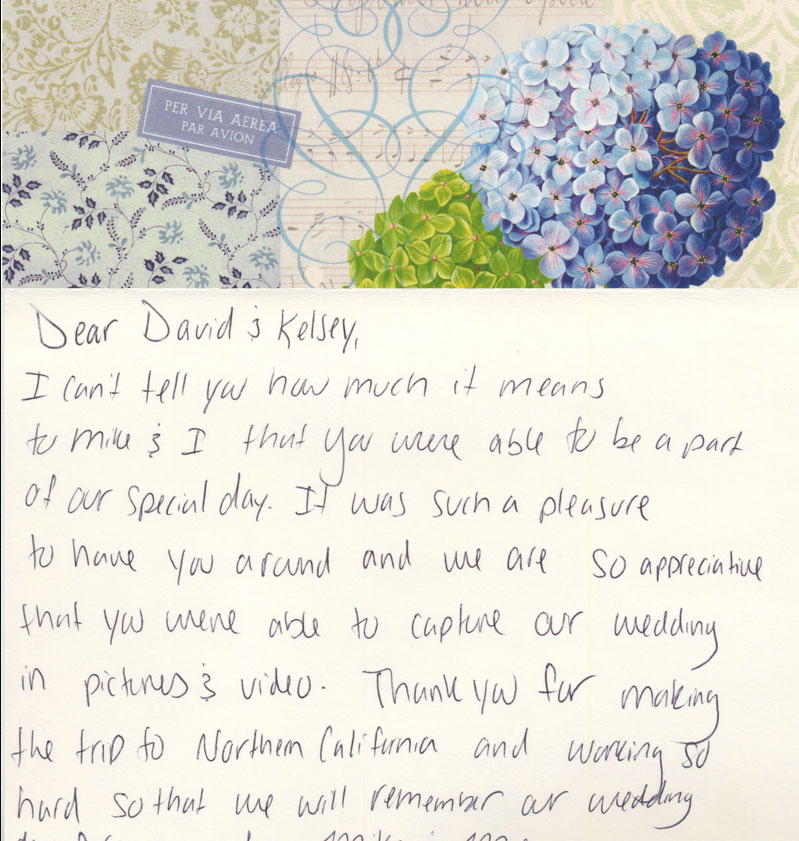 PER VIA AEREA
PAR AVION
Dear David & Kelsey,
I can't tell you how much it means
to Mike & I that you were able to be a part
of our special day. It was such a pleasure
to have you around and we are so appreciative
that you were able to capture our wedding
in pictures & video. Thank you for making
the trip to Northern California and working so
hard so that we will remember our wedding